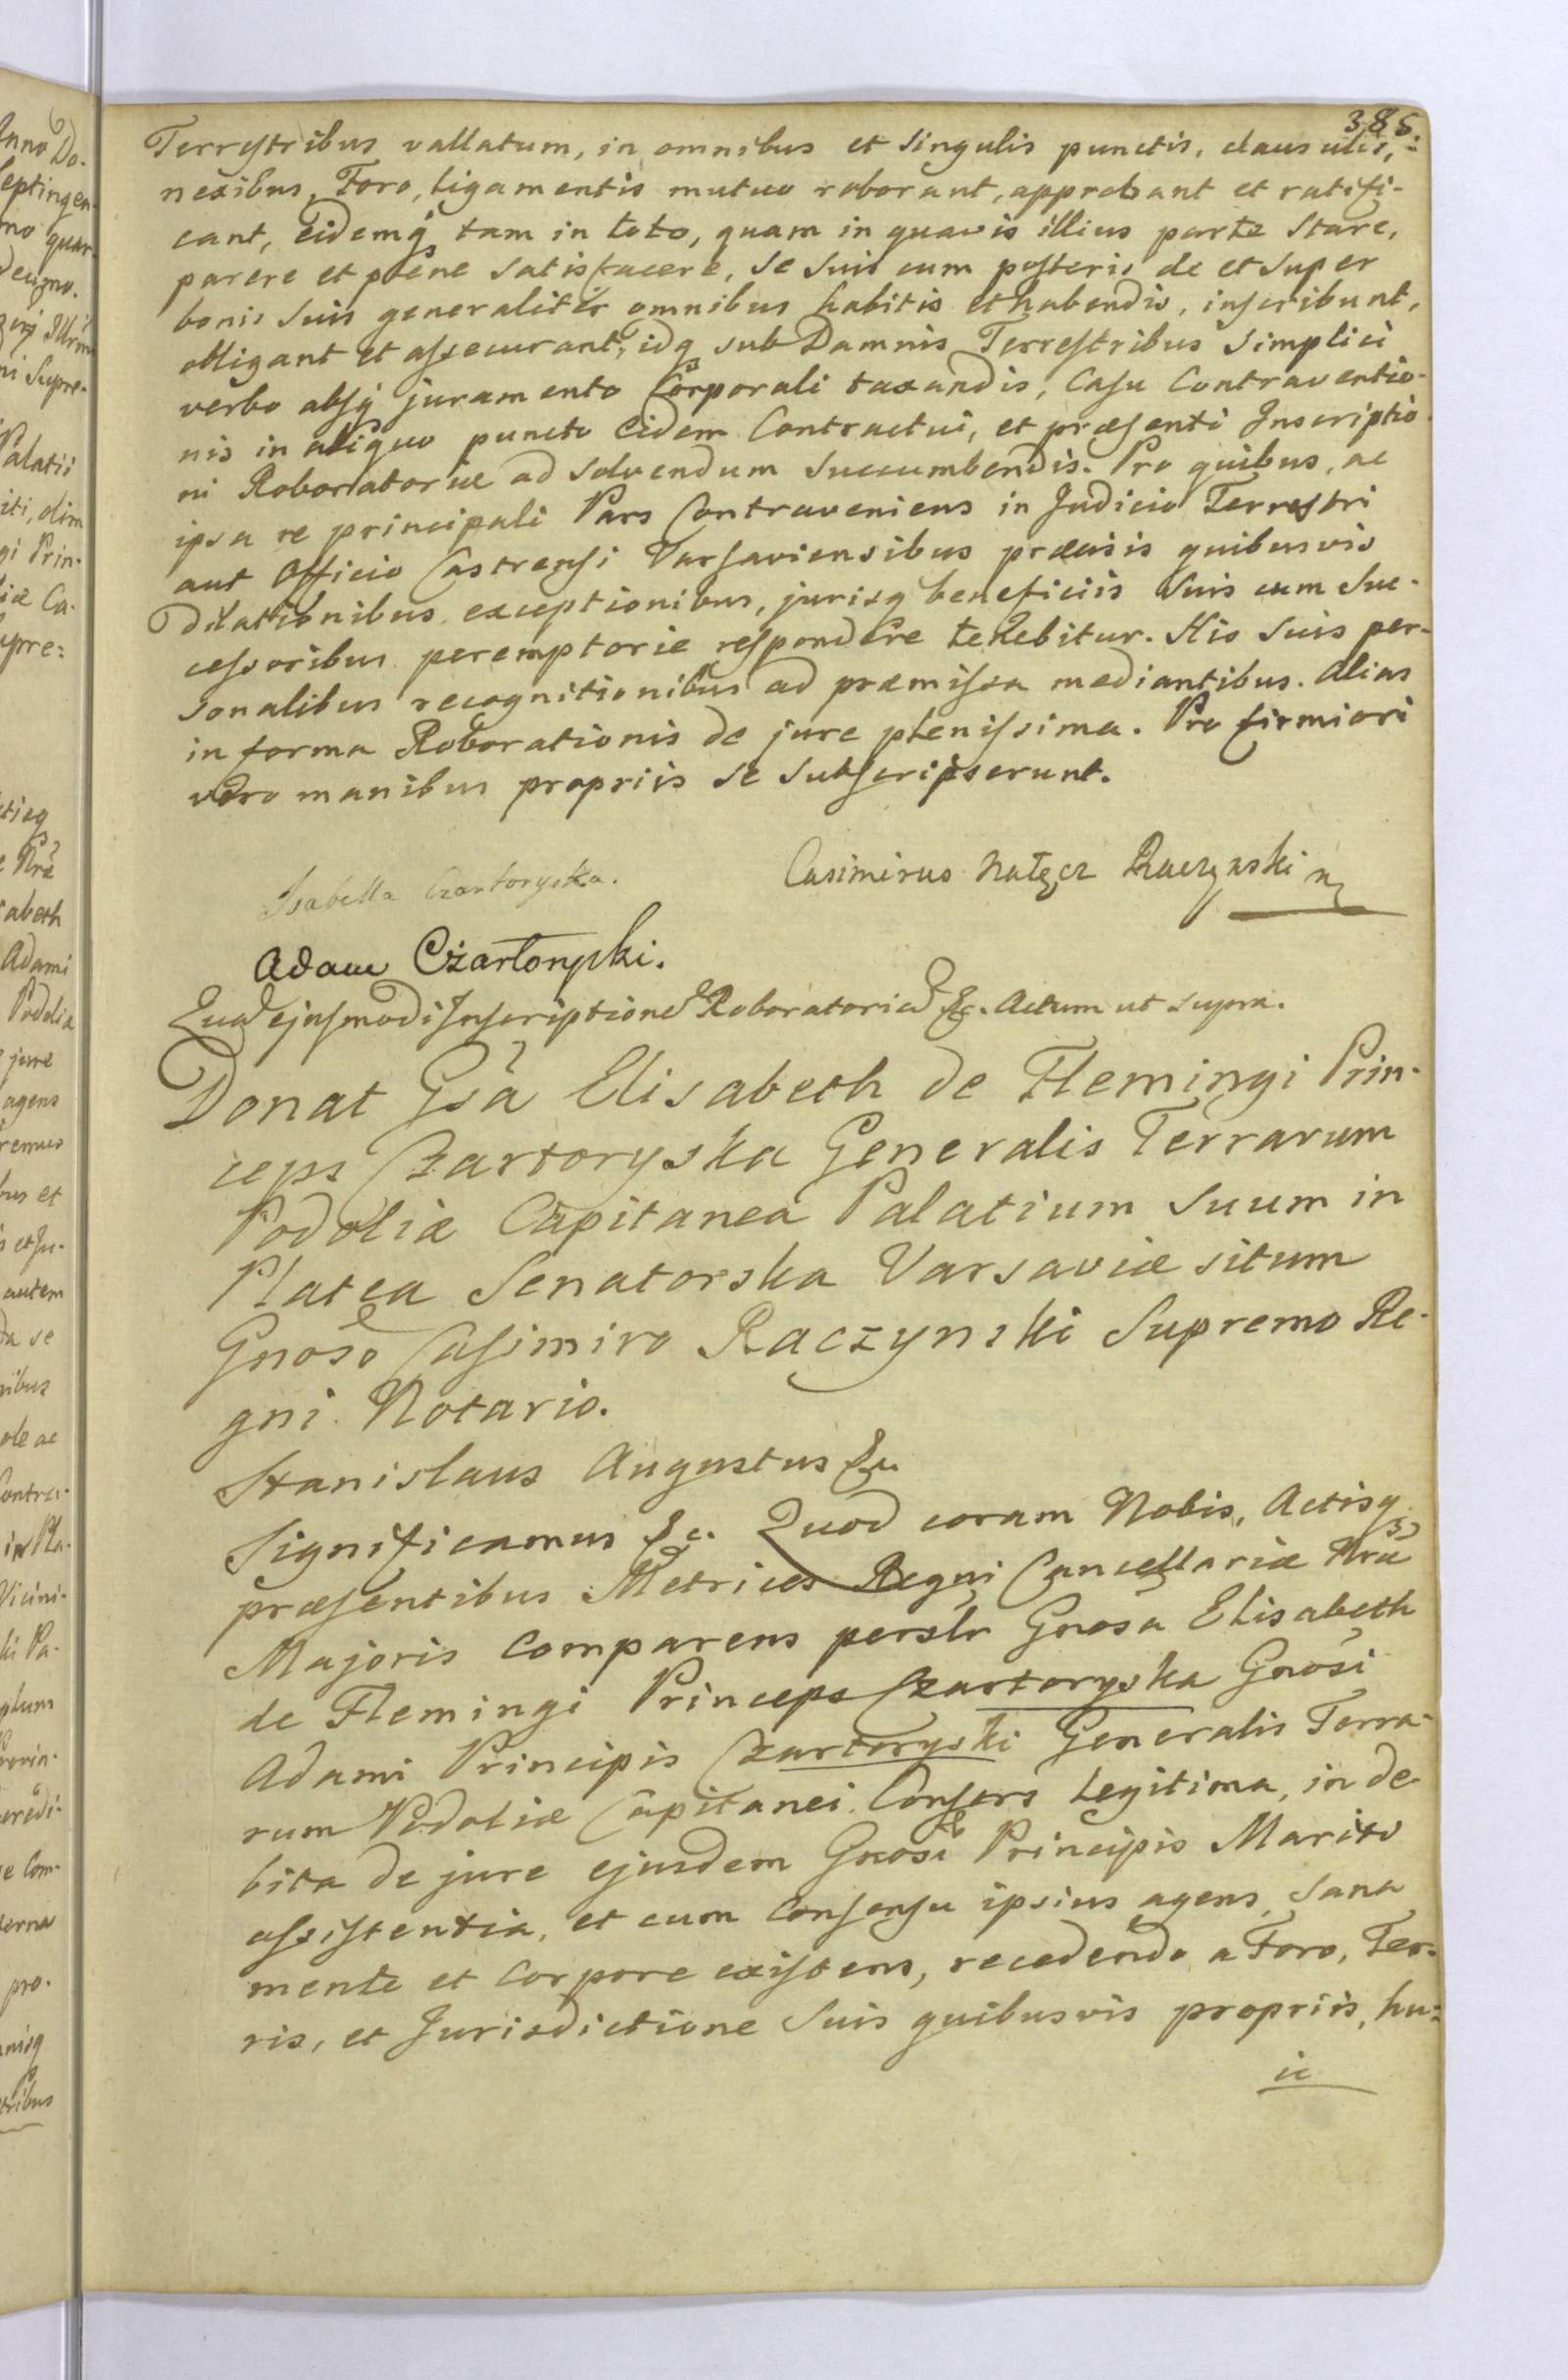 385.
Terrestribus vallatum, in omnibus et singulis punctis, clausulis,
nexibus, Foro, ligamentis mutuo roborant, approbant et ratifi-
cant, Eidemq tam in toto, quam in quavis illius parte Stare,
parere et plene satisfacere, se suis cum posteris de et super
bonis suis generaliter omnibus habitis et habendis, inscribunt,
obligant et assecurant, idq sub Damnis Terrestribus Simplici
verbo absq juramento Corporali taxandis, Casu Contraventio-
nis in aliquo puncto Eidem Contractui, et præsenti Inscriptio-
ni Roboratoriæ ad solvendum succumbendis. Pro quibus, ac
ipsa re principali Pars Contraveniens in Judicio Terrestri
aut Officio Castrensi Varsaviensibus præcisis quibusvis
Dilationibus, exceptionibus, jurisq beneficiis Suis cum Suc-
cessoribus peremptorie respondere tenebitur. His Suis per-
sonalibus recognitionibus ad præmissa mediantibus. Alias
in forma Roborationis de jure plenissima. Pro firmiori
vero manibus propriis se subscripserunt.
Isabella Czartoryska.
Casimirus Nałęcz Raczynski
Adam Czartoryski.
Quod ejusmodi Inscriptione Roboratoria &c. Actum ut supra.
Donat Gsa Elisabeth de Flemingi Prin-
ceps Czartoryska Generalis Terrarum
Podoliæ Capitanea Palatium Suum in
Platea Senatorska Varsaviæ situm
Gnoso Casimiro Raczynski Supremo Re-
gni Notario.
Stanislaus Augustus &c.
Significamus &c. Quod coram Nobis, Actisq
præsentibus Metrices Regni Cancellariæ Nræ
Majoris Comparens perslr Gnosa Elisabeth
de Flemingi Princeps Czartoryska Gnosi
Adami Principis Czartoryski Generalis Terra-
rum Podoliæ Capitanei Consors Legitima, in de-
bita de jure ejusdem Gnosi Principis Mariti
assistentia, et cum Consensu ipsius agens, Sana
mente et Corpore existens, recedendo a Foro, Ter-
ris, et Jurisdictione Suis quibusvis propriis, hu-
ic